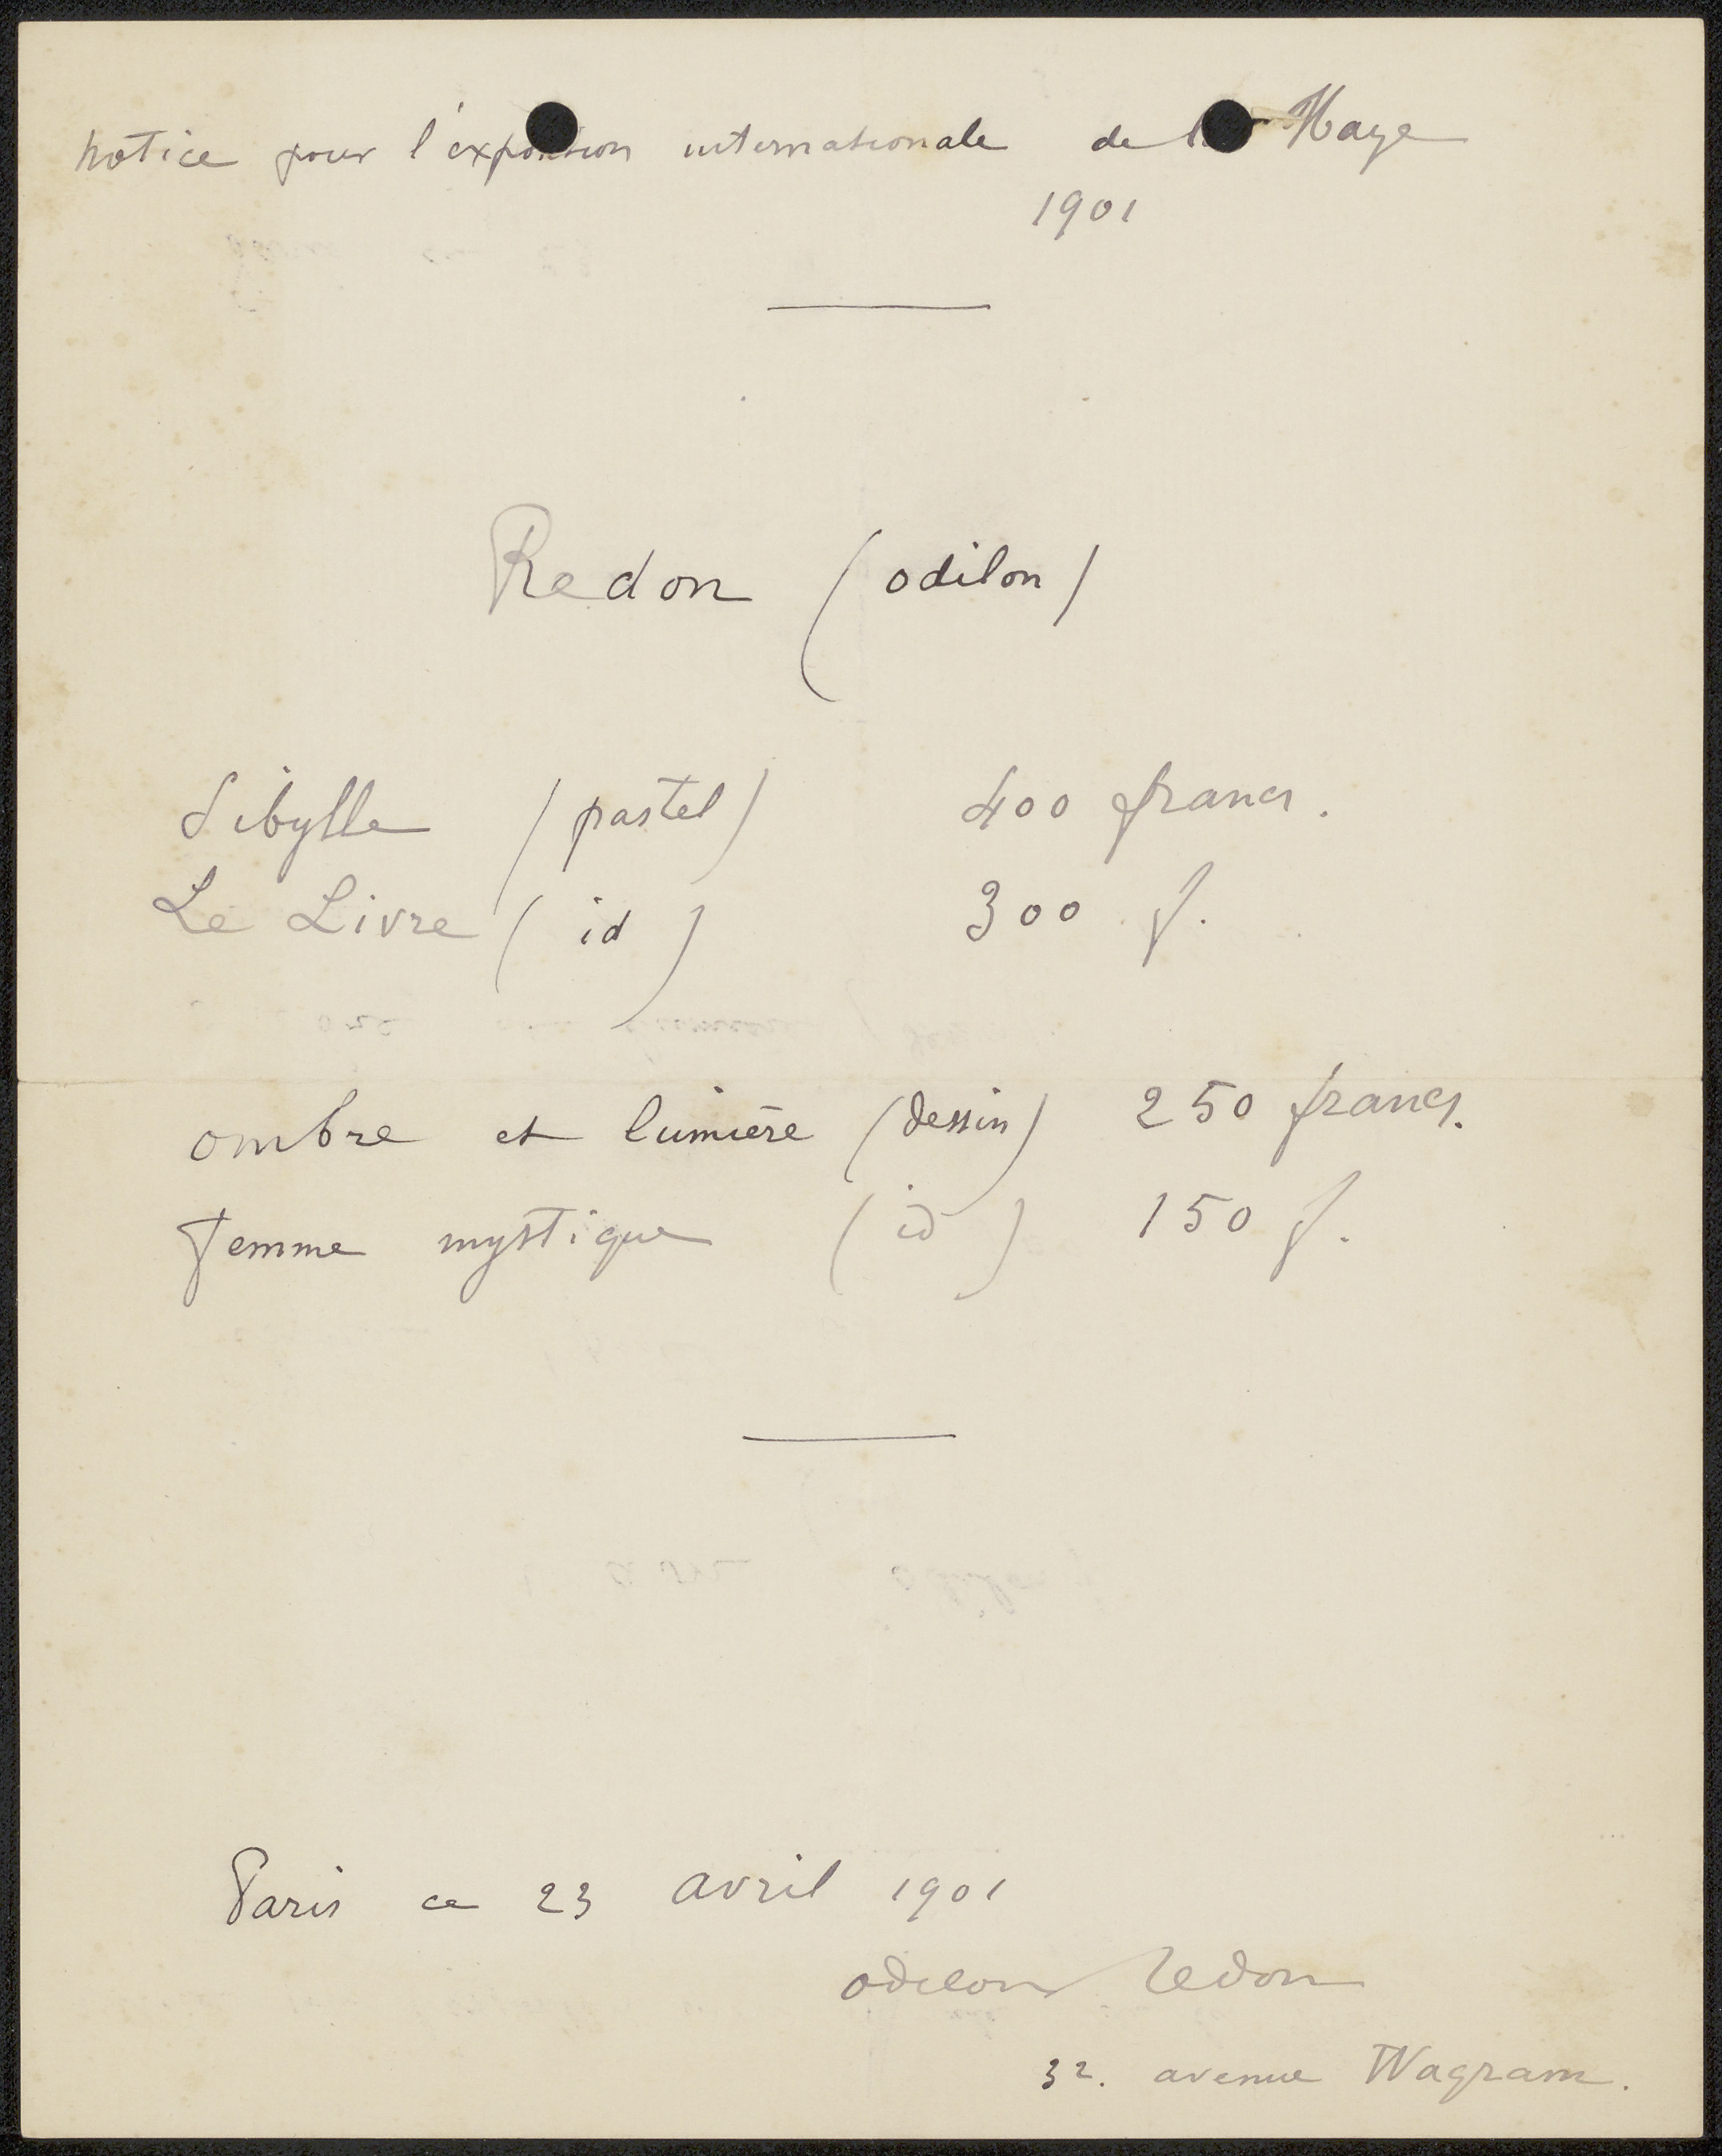 notice pour l'exposition internationale de la Haye
1901
Redon (odilon)
Sibylle (pastel) 400 francs.
Le Livre (id) 300 f.
ombre et lumière (dessin) 250 francs.
femme mystique (id) 150 f.
Paris ce 23 avril 1901
odilon Redon
32. avenue Wagram.